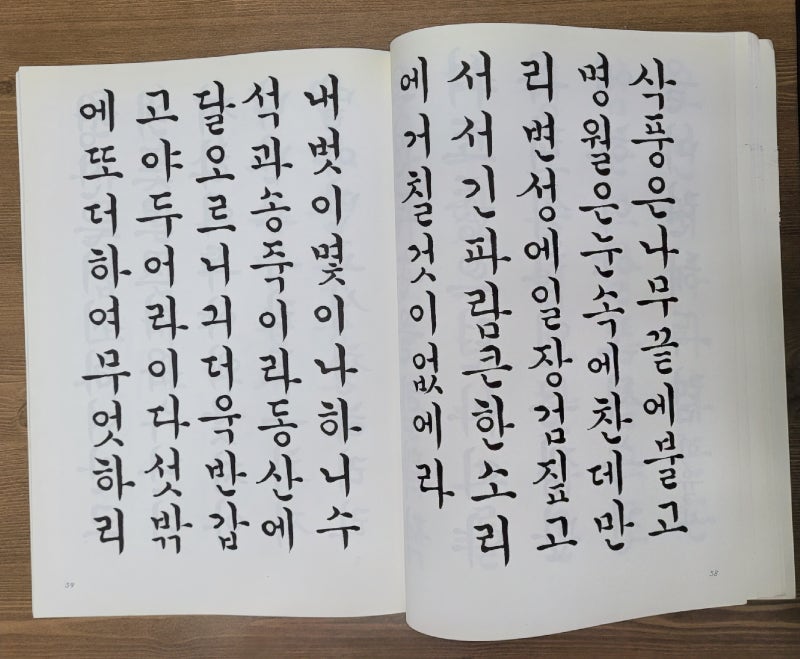 삭풍은나무끝에불고
명월은눈속에찬데만
리변성에일장검짚고
서서긴파람큰한소리
에거칠것이없에라
58
내벗이몇이나하니수
석과송죽이라동산에
달오르니긔더욱반갑
고야두어라이다섯밖
에또더하여무엇하리
59